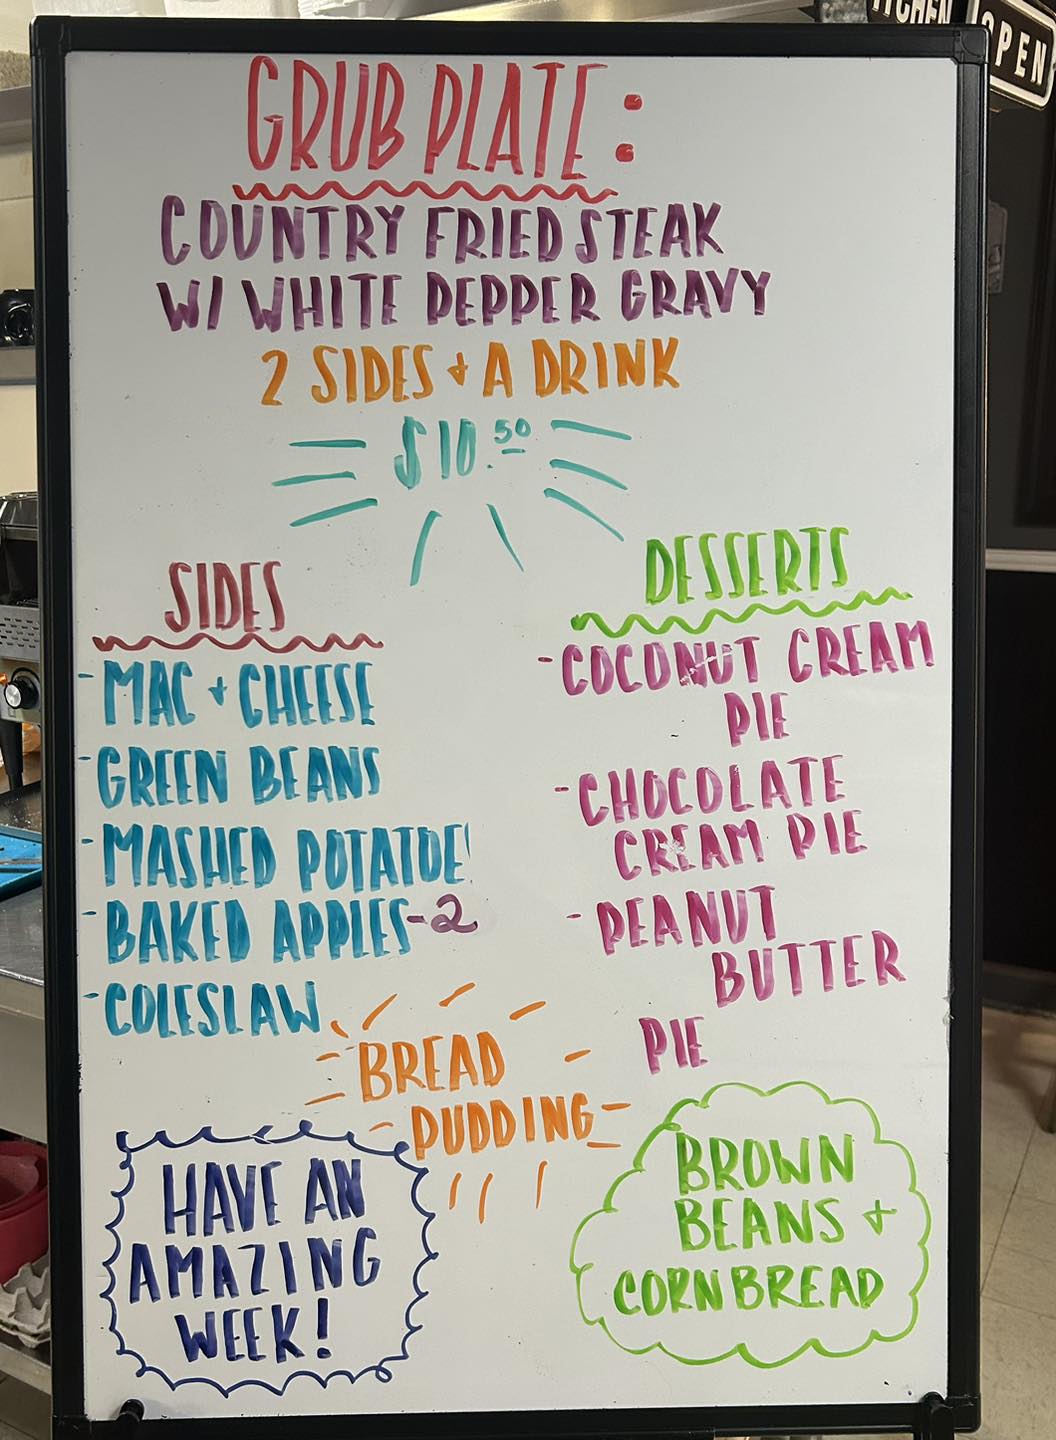 KITCHEN
OPEN
GRUB PLATE:
COUNTRY FRIED STEAK
W/ WHITE PEPPER GRAVY
2 SIDES + A DRINK
$10.50
SIDES
- MAC + CHEESE
- GREEN BEANS
- MASHED POTATOE
- BAKED APPLES -2
- COLESLAW
DESSERTS
- COCONUT CREAM
PIE
- CHOCOLATE
CREAM PIE
- PEANUT
BUTTER
PIE
BREAD
PUDDING
HAVE AN
AMAZING
WEEK!
BROWN
BEANS +
CORNBREAD